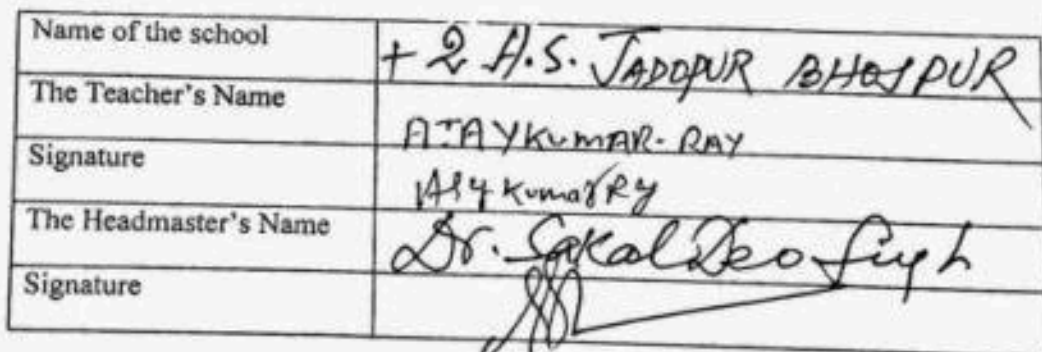 Name of the school + 2 H.S. JADOPUR BHOJPUR
The Teacher's Name AJAY KUMAR-RAY
Signature Ajy Kumar Ry
The Headmaster's Name Dr. Sakal Deo Singh
Signature